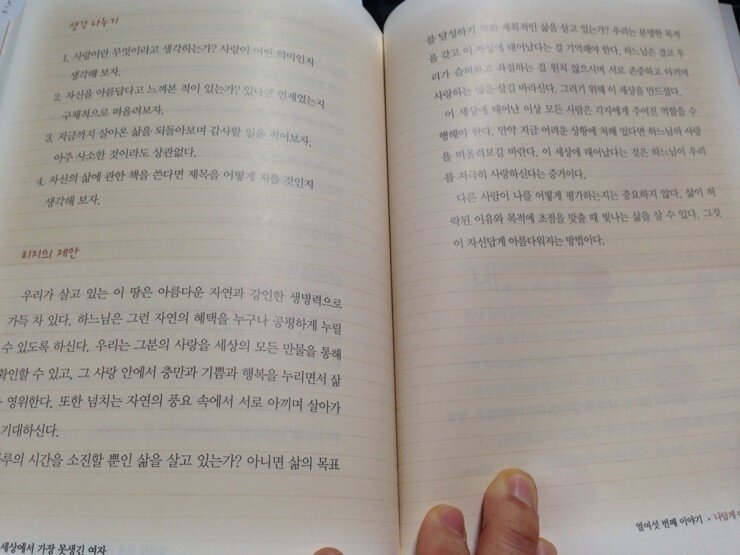 생각 나누기
1. 사람이란 무엇이라고 생각하는가? 사랑이 어떤 의미인지
생각해 보자.
2. 자신을 아름답다고 느껴본 적이 있는가? 있다면 언제였는지
구체적으로 떠올려보자.
3. 지금까지 살아온 삶을 되돌아보며 감사할 일을 적어보자.
아주 사소한 것이라도 상관없다.
4. 자신의 삶에 관한 책을 쓴다면 제목을 어떻게 지을 것인지
생각해 보자.
리지의 제안
우리가 살고 있는 이 땅은 아름다운 자연과 강인한 생명력으로
가득 차 있다. 하느님은 그런 자연의 혜택을 누구나 공평하게 누릴
수 있도록 하신다. 우리는 그분의 사랑을 세상의 모든 만물을 통해
확인할 수 있고, 그 사랑 안에서 충만과 기쁨과 행복을 누리면서 삶
영위한다. 또한 넘치는 자연의 풍요 속에서 서로 아끼며 살아가
기대하신다.
루의 시간을 소진할 뿐인 삶을 살고 있는가? 아니면 삶의 목표
세상에서 가장 못생긴 여자
를 달성하기 위해 계획적인 삶을 살고 있는가? 우리는 분명한 목적
을 갖고 이 세상에 태어났다는 걸 기억해야 한다. 하느님은 결코 우
리가 슬퍼하고 좌절하는 걸 원치 않으시며 서로 존중하고 아끼며
사랑하는 삶을 살길 바라신다. 그러기 위해 이 세상을 만드셨다.
이 세상에 태어난 이상 모든 사람은 각자에게 주어진 역할을 수
행해야 한다. 만약 지금 어려운 상황에 처해 있다면 하느님의 사랑
을 떠올려보길 바란다. 이 세상에 태어났다는 것은 하느님이 우리
를 지극히 사랑하신다는 증거이다.
다른 사람이 나를 어떻게 평가하는지는 중요하지 않다. 삶이 허
락된 이유와 목적에 초점을 맞출 때 빛나는 삶을 살 수 있다. 그것
이 자신답게 아름다워지는 방법이다.
열여섯 번째 이야기 • 나답게